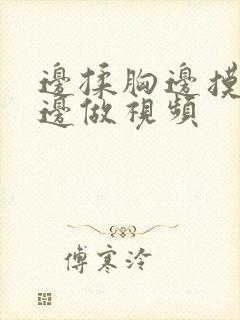 邊揉胸邊摸
邊做視頻
傅寒泠